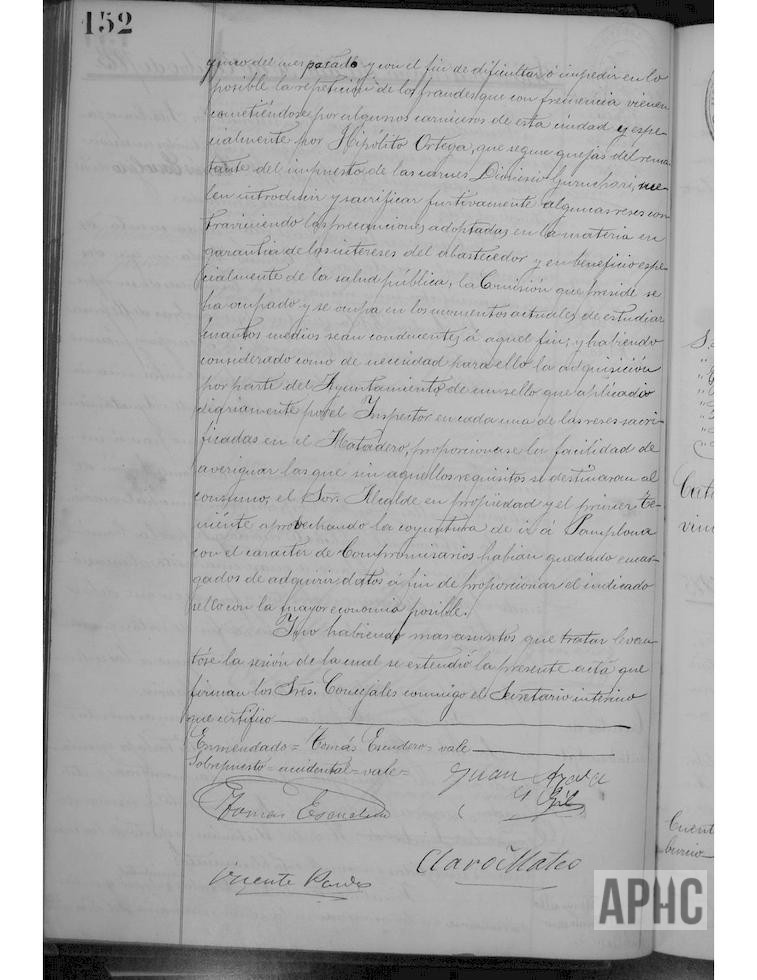 152
quince del mes pasado y con el fin de dificultar ó impedir en lo
posible la repetición de los fraudes que con frecuencia vienen
cometiéndose por algunos carniceros de esta ciudad y espe-
cialmente por Hipólito Ortega, que segun quejas del rema-
tante del impuesto de las carnes Dionisio Guruchari, sue-
len introducir y sacrificar furtivamente algunas reses con-
traviniendo las precauciones adoptadas en la materia en
garantia de los intereses del abastecedor y en beneficio espe-
cialmente de la salud pública, la Comisión que preside se
ha ocupado y se ocupa en los momentos actuales de estudiar
cuantos medios sean conducentes á aquel fin; y habiendo
considerado como de necesidad para ello la adquisición
por parte del Ayuntamiento de un sello que aplicado
diariamente por el Inspector en cada una de las reses sacri-
ficadas en el Matadero, proporcionase la facilidad de
averiguar las que sin aquellos requisitos se destinaran al
consumo, el Sor. Alcalde en propiedad y el primer te-
niente aprovechando la coyuntura de ir á Pamplona
con el caracter de Compromisarios habian quedado encar-
gados de adquirir datos á fin de proporcionar el indicado
sello con la mayor economia posible.
Y no habiendo mas asuntos que tratar levan-
tóse la sesión de la cual se extendió la presente acta que
firman los Sres. Concejales conmigo el Secretario interino
que certifico
Enmendado = Tomás Escudero = vale
Sobrepuesto = accidental = vale =
Juan Ayala
y Gil
Tomás Escudero
Claro Mateo
Vicente
APHC